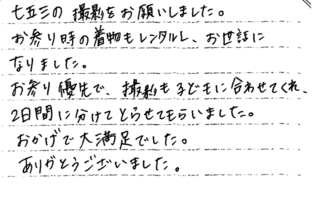 七五三の撮影をお願いしました。
お参り時の着物もレンタルし、お世話に
なりました。
お参り優先で、撮影も子どもに合わせてくれ、
2日間に分けてとらせてもらいました。
おかげで大満足でした。
ありがとうございました。